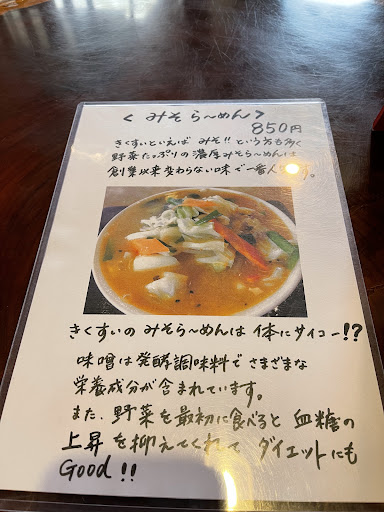 < みそら～めん >
850円
きくすいといえば みそ!! という方も多く
野菜たっぷりの濃厚みそら～めんは
創業以来変わらない味で一番人 す。
きくすいの みそら～めんは 体にサイコー!?
味噌は発酵調味料でさまざまな
栄養成分が含まれています。
また、野菜を最初に食べると 血糖の
上昇 を抑えてくれて ダイエットにも
Good !!